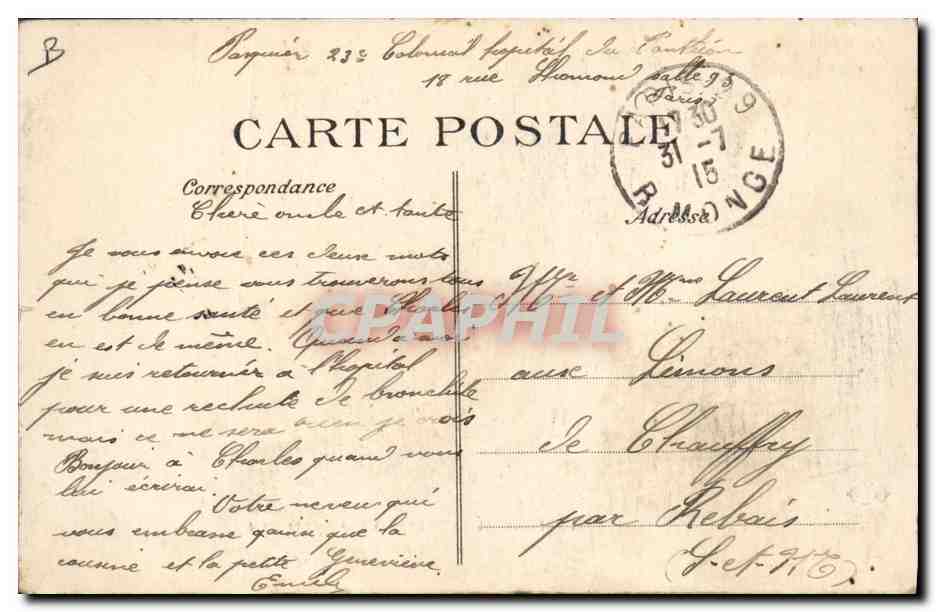 B
Pasquier 23e Colonial hopital du Panthéon
18 rue Lhomond salle 93
Paris 5
CARTE POSTALE
PARIS 29
17 30
31 -7
15
R. MONGE
Correspondance
Adresse
Cherè oncle et tante
Je vous envoie ces deux mots
qui je pense vous trouverons tous
en bonne santé et que Charles
en est de même. Quand à moi
je suis retourner à l'hopital
pour une rechute de bronchite
mais ce ne sera rien je crois
Bonjour à Charles quand vous
lui écrirai.
Votre neveu qui
vous embrasse ainsi que la
cousine et la petite Geneviève
Mr et Mme Laurent Laurent
aux Limons
de Chauffry
par Rebais
(S-et-M)
CPAPHIL